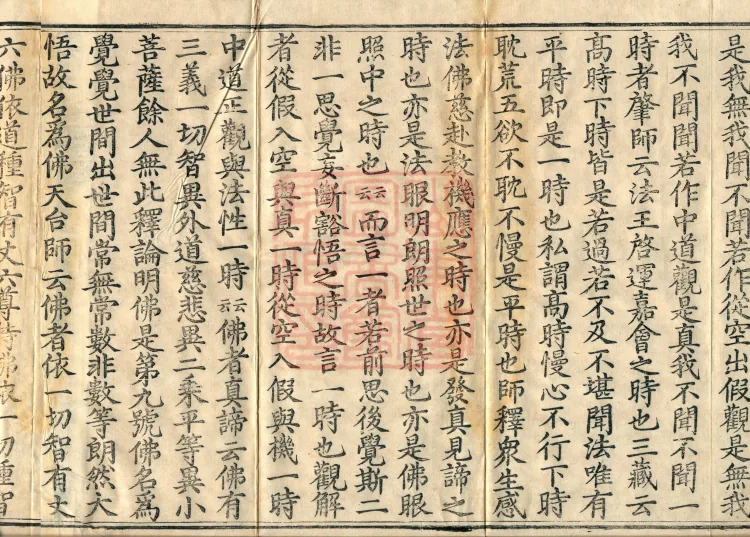 是我無我聞不聞若作從空出假觀是無我
我不聞聞若作中道觀是真我不聞不聞一
時者肇師云法王啓運嘉會之時也三藏云
高時下時皆是若過若不及不堪聞法唯有
平時即是一時也私謂高時慢心不行下時
耽荒五欲不耽不慢是平時也師釋衆生感
法佛慈赴教機應之時也亦是發真見諦之
時也亦是法眼明朗照世之時也亦是佛眼
照中之時也云云而言一者若前思後覺斯二
非一思覺妄斷豁悟之時故言一時也觀解
者從假入空與真一時從空入假與機一時
中道正觀與法性一時云云佛者真諦云佛有
三義一切智異外道慈悲異二乘平等異小
菩薩餘人無此釋論明佛是第九號佛名為
覺覺世間出世間常無常數非數等朗然大
悟故名為佛天台師云佛者依一切智有丈
六佛依道種智有丈六尊特佛依一切種智